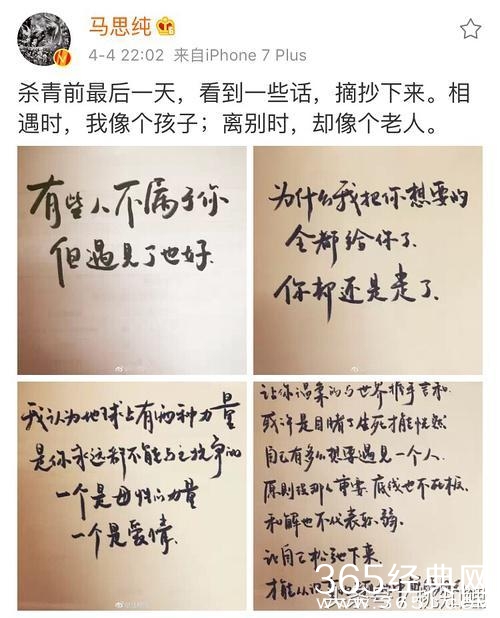 马思纯
4-4 22:02 来自iPhone 7 Plus
杀青前最后一天，看到一些话，摘抄下来。相
遇时，我像个孩子；离别时，却像个老人。
有些人不属于你
但遇见了也好.
为什么我把你想要的
全都给你了.
你却还是走了.
我认为地球上有两种力量
是你永远都不能与之抗争的
一个是母性的力量
一个是爱情.
让你温柔的与世界握手言和.
或许是目睹了生死才能恍然
自己有多么想要遇见一个人.
原则没那么重要.底线也不死板.
和解也不代表软弱.
让自己松弛下来.
才能
365经典网
www.365